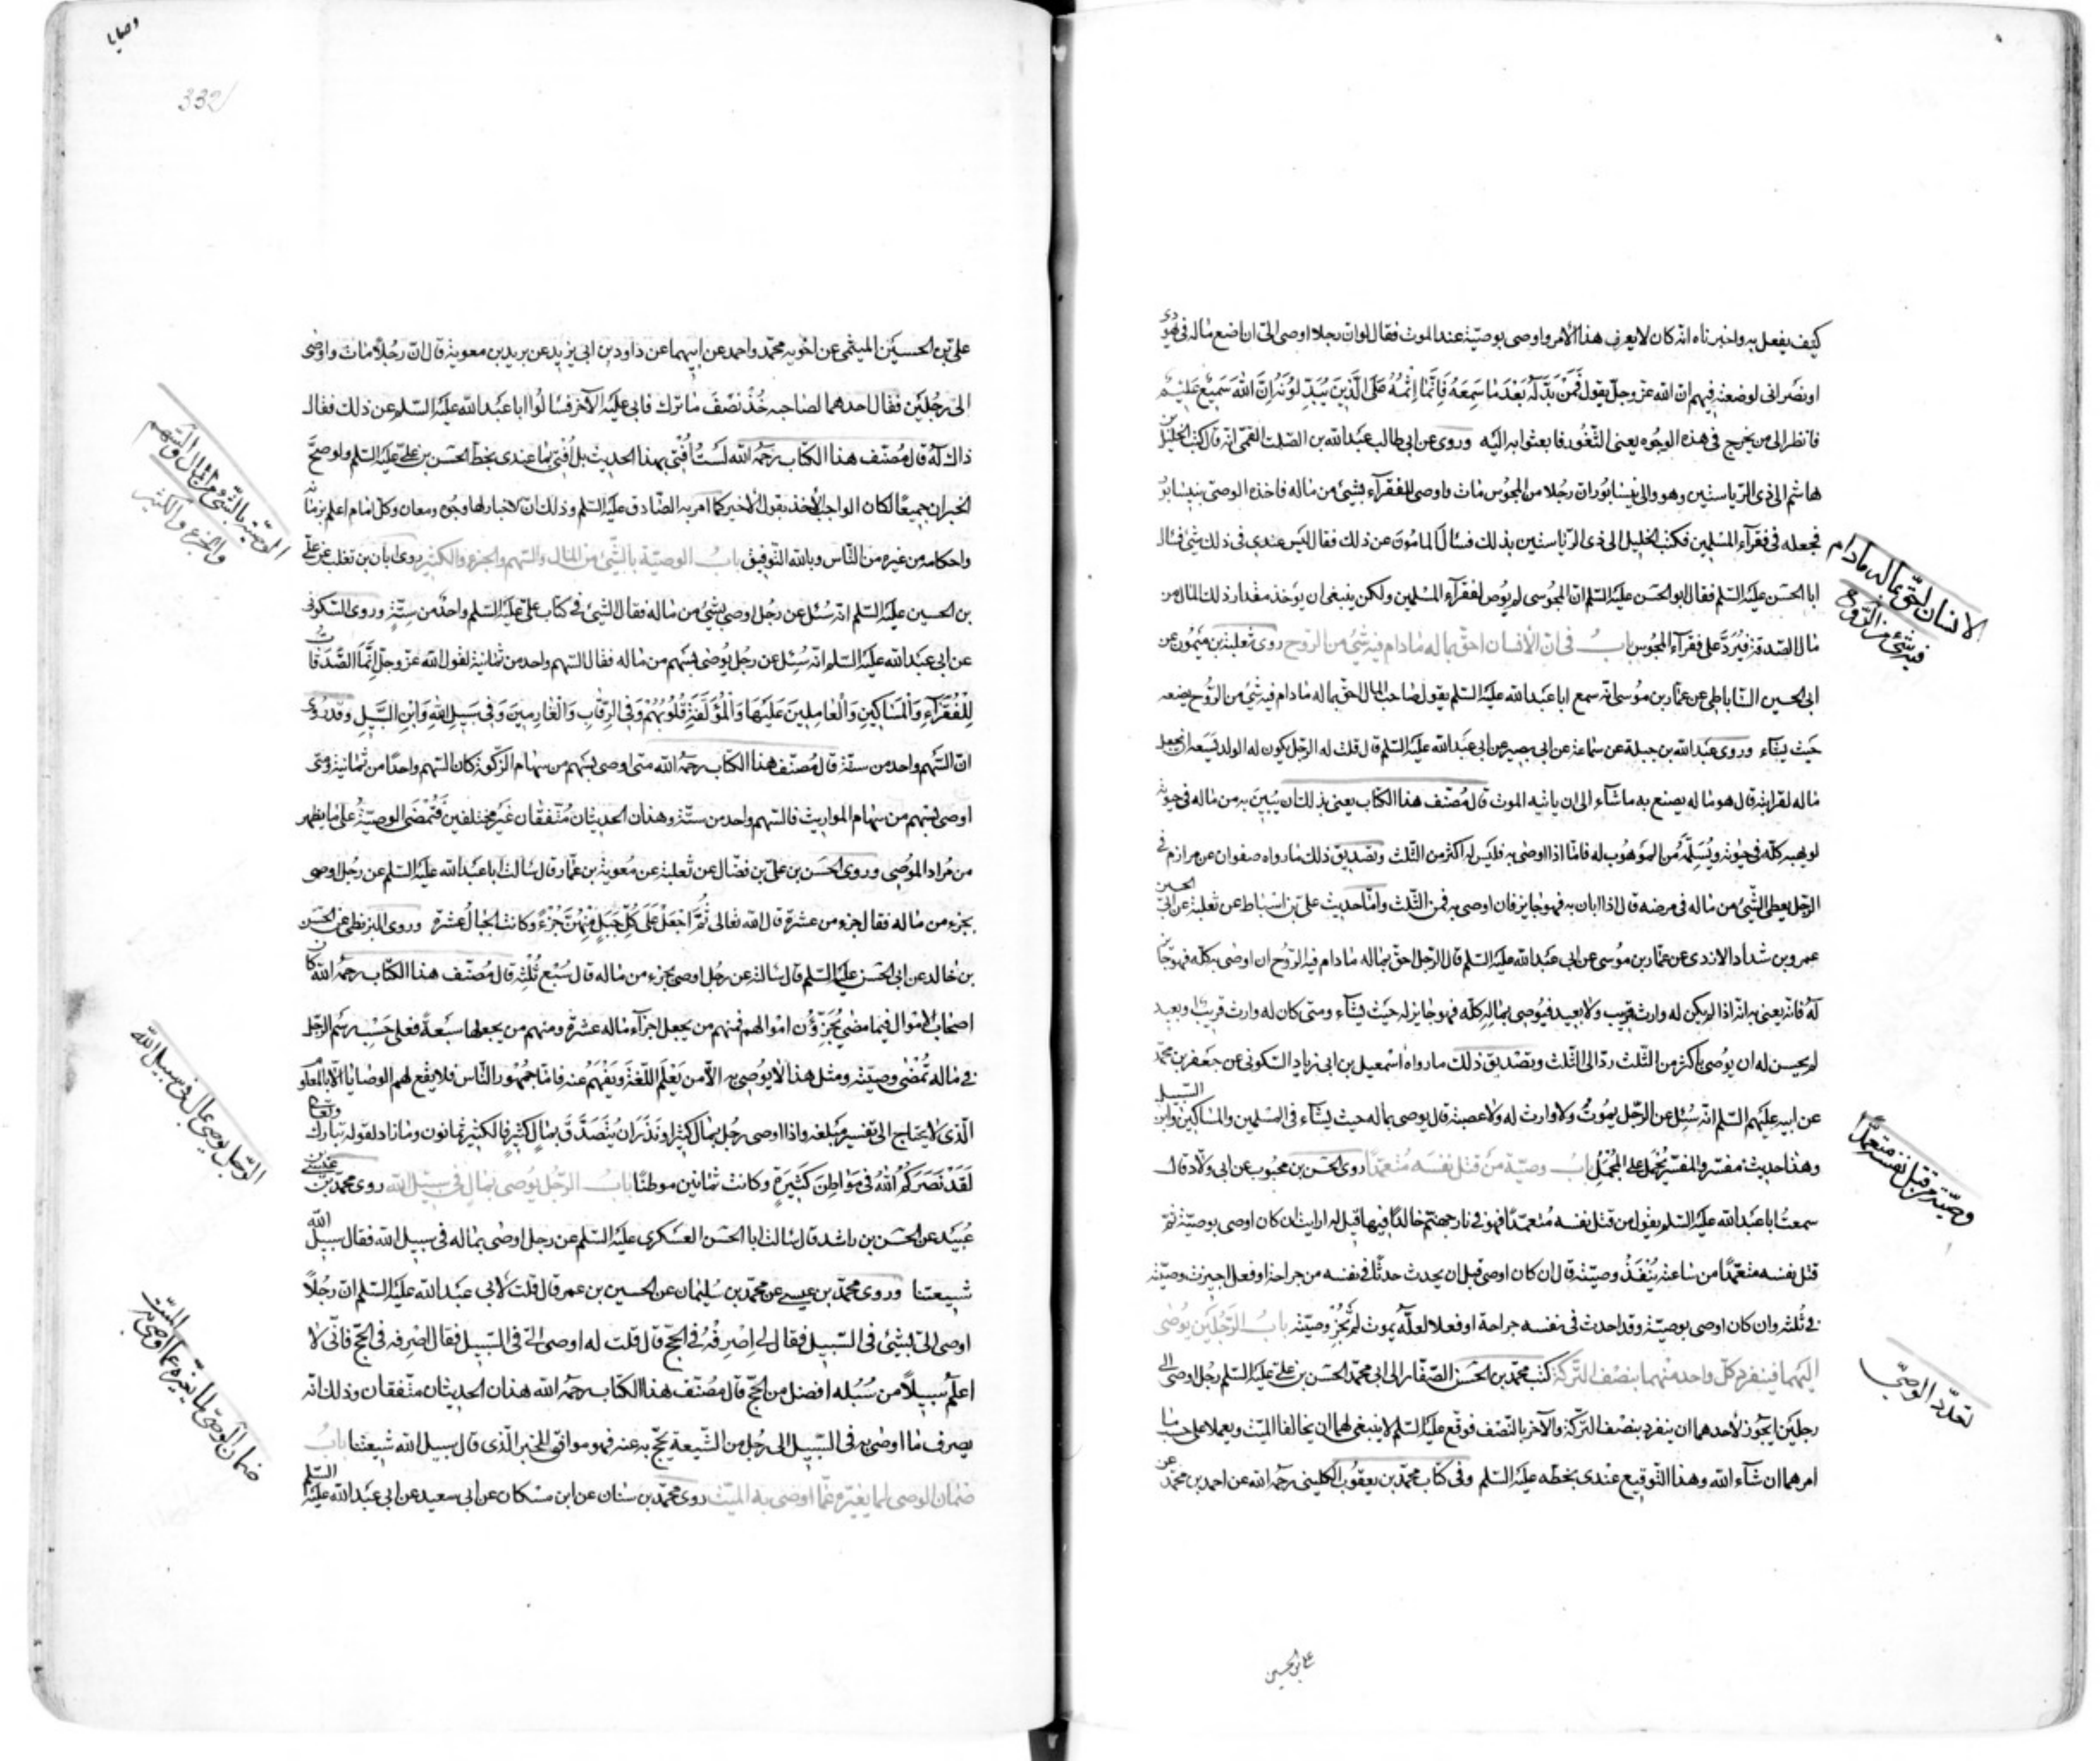 كيف يفعل به واخبرناه انه كان لا يعرف هذا الأمر واوصى بوصيّة عند الموت فقال لو ان رجلا اوصى الىّ ان اضع ماله فى يهودى
او نصرانى لوضعته فيهم ان الله عز وجلّ يقول فَمَنْ بَدَّلَهُ بَعْدَ مَا سَمِعَهُ فَإِنَّمَا إِثْمُهُ عَلَى الَّذِينَ يُبَدِّلُونَهُ إِنَّ اللهَ سَمِيعٌ عَلِيمٌ
فانظر الى من يخرج فى هذه الوجوه يعنى الثّغور فابعثوا به اليه وروى عن ابى طالب عبد الله بن الصّلت القمّى انه قال كتب الخليل بن
هاشم الى ذى الرّياستين وهو والى نيسابور ان رجلا من المجوس مات واوصى للفقرآء بشئ من ماله فاخذه الوصىّ بنيسابور
فجعله فى فقرآء المسلمين فكتب الخليل الى ذى الرّياستين بذلك فسأل المامون عن ذلك فقال ليس عندى فى ذلك شئ فسأل
ابا الحسن عليه السّلم فقال ابو الحسن عليه السّلم ان المجوسى لم يوص لفقرآء المسلمين ولكن ينبغى ان يؤخذ مقدار ذلك المال من
مال الصّدقة فيُرَدّ على فقرآء المجوس بابُ فى ان الأنسان احقّ بماله مادام فيه شئ من الرّوح روى ثعلبة بن ميمون عن
ابى الحسين السّاباطى عن عمّار بن موسى انّه سمع ابا عبد الله عليه السّلم يقول صاحب المال احقّ بماله مادام فيه شئ من الرّوح يضعه
حيث يشآء وروى عبد الله بن جبلة عن سماعة عن ابى بصير عن ابى عبد الله عليه السّلم قال قلت له الرّجل يكون له الولد يسعه ان يجعل
ماله لقرابته قال هو ماله يصنع به ما شآء الى ان ياتيه الموت قال مُصنّف هذا الكتاب يعنى بذلك ان يُبين به من ماله فى حيوته
او يهبه كلّه فى حيوته ويُسلِّمه من الموهوب له فامّا اذا اوصى به فليس له اكثر من الثّلث وتصديق ذلك ما رواه صفوان عن مرازم فى
الرّجل يعطى الشّئ من ماله فى مرضه قال اذا ابان به فهو جايز فان اوصى به فمن الثّلث وامّا حديث علىّ بن اسباط عن ثعلبة عن ابى الحسين
عمرو بن شداد الازدى عن عمّار بن موسى عن ابى عبد الله عليه السّلم قال الرّجل احقّ بماله مادام فيه الرّوح ان اوصى بكلّه فهو جايز
له فانّه يعنى به انّه اذا لم يكن له وارث قريب ولا بعيد فيُوصى بماله كلّه فهو جايز له حيث يشآء ومتى كان له وارث قريب او بعيد
لم يحسن له ان يوصى باكثر من الثّلث ردّ الى الثّلث وتصديق ذلك ما رواه اسمعيل بن ابى زياد السّكونى عن جعفر بن محمّد
عن ابيه عليهم السّلم انّه سُئل عن الرّجل يموت ولا وارث له ولا عصبة قال يوصى بماله حيث يشآء فى المسلمين والمساكين وابن السّبيل
وهذا حديث مفسّر والمفسّر يُحمل على المجمل باب وصيّة من قتل نفسه متعمّدا روى الحسن بن محبوب عن ابى ولّاد قال
سمعت ابا عبد الله عليه السّلم يقول من قتل نفسه مُتعمّدًا فهو فى نار جهنّم خالدًا فيها قيل له ارايت ان كان اوصى بوصيّة ثم
قتل نفسه متعمّدًا من ساعته يُنْفَذُ وصيّته قال ان كان اوصى قبل ان يحدث حدثًا فى نفسه من جراحة او فعل اجيزت وصيّته
فى ثُلثه وان كان اوصى بوصيّة وقد احدث فى نفسه جراحة او فعلا لعلّه يموت لم تُجز وصيّته باب الرّجلين يوصى
اليهما فينفرد كلّ واحد منهما بنصف التّركة كتب محمّد بن الحسن الصّفّار الى ابى محمّد الحسن بن علىّ عليه السّلم رجل اوصى الى
رجلين ايجوز لاحدهما ان ينفرد بنصف التّركة والآخر بالنّصف فوقّع عليه السّلم لا ينبغى لهما ان يخالفا الميّت ويعملا على حسب ما
امرهما ان شآء الله وهذا التّوقيع عندى بخطّه عليه السّلم وفى كتاب محمّد بن يعقوب الكلينى رحمه الله عن احمد بن محمّد عن
الانسان احقّ بماله مادام
فيه شئ من الرّوح
وصيّة من قتل نفسه متعمّدًا
تعدّد الوصىّ
على بن الحسين
وصايا
332
علىّ بن الحسين الميثمى عن اخويه محمّد واحمد عن ابيهما عن داود بن ابى يزيد عن بريد بن معوية قال ان رجُلًا مات واوصى
الى رجُلين فقال احدهما لصاحبه خُذْ نصْفَ ما ترك فابى عليه الآخر فسالوا ابا عبد الله عليه السّلم عن ذلك فقال
ذاك له قال مُصنّف هذا الكتاب رحمه الله لَستُ اُفْتى بهذا الحديث بل اُفْتى بما عندى بخطّ الحسن بن علىّ عليه السّلم ولو صحَّ
الخبران جميعًا لكان الواجب الأخذ بقول الأخير كما امر به الصّادق عليه السّلم وذلك انّ الاخبار لها وجوه ومعان وكلّ امام اعلم بزمانه
واحكامه من غيره من النّاس وبالله التّوفيق باب الوصيّة بالشّئ من المال والسّهم والجزء والكثير روى ابان بن تغلب عن علىّ
بن الحسين عليه السّلم انّه سُئل عن رجُل اوصى بشئ من ماله فقال الشّئ فى كتاب علىّ عليه السّلم واحدٌ من سِتّة وروى السّكونى
عن ابى عبد الله عليه السّلم انّه سُئل عن رجُل يُوصى بسهم من ماله فقال السّهم واحد من ثمانية لقول الله عز وجلّ إِنَّمَا الصَّدَقَاتُ
لِلْفُقَرَآءِ وَالْمَسَاكِينِ وَالْعَامِلِينَ عَلَيْهَا وَالْمُؤَلَّفَةِ قُلُوبُهُمْ وَفِى الرِّقَابِ وَالْغَارِمِينَ وَفِى سَبِيلِ اللهِ وَابْنِ السَّبِيلِ وقد روى
انّ السّهم واحد من ستّة قال مُصنّف هذا الكتاب رحمه الله متى اوصى بسهم من سهام الزّكوة كان السّهم واحدًا من ثمانية ومتى
اوصى بسهم من سهام المواريث فالسّهم واحد من ستّة وهذان الحديثان مُتّفقان غير مختلفين فتُمضى الوصيّة على ما يظهر
من مُراد الموُصى وروى الحسن بن علىّ بن فضّال عن ثعلبة عن مُعوية بن عمّار قال سالت ابا عبد الله عليه السّلم عن رجُل اوصى
بجزء من ماله فقال جزء من عشرة قال الله تعالى ثُمَّ اجْعَلْ عَلَى كُلِّ جَبَلٍ مِنْهُنَّ جُزْءً وكانت الجبال عشرة وروى البزنطى عن الحسين
بن خالد عن ابى الحسن عليه السّلم قال سالته عن رجُل اوصى بجزء من ماله قال سُبْع ثُلُثِه قال مُصنّف هذا الكتاب رحمه الله كان
اصحاب الاموال فيما مضى يُجَزِّؤُن اموالهم فمنهم من يجعل اجزآء ماله عشرة ومنهم من يجعلها سبعة فعلى حَسْب رسم الرّجل
فى ماله تُمْضى وصيّته ومثل هذا لا يُوصى به الاّ من يَعْلَم اللّغة ويَفْهم عنه فامّا جمهور النّاس فلا يقع لهم الوصايا الاّ بالمعلوم
الّذى لا يحتاج الى تفسير مبلغه واذا اوصى رجُل بمال كثير او نذر ان يتصدّق بمال كثير فالكثير ثمانون وما زاد لقوله تبارك وتعالى
لَقَدْ نَصَرَكُمُ اللهُ فِى مَوَاطِنَ كَثِيرَةٍ وكانت ثمانين موطنًا باب الرّجل يوصى بمال فى سبيل الله روى محمّد بن عيسى بن
عُبَيْد عن الحسن بن راشد قال سالت ابا الحسن العسكرى عليه السّلم عن رجل اوصى بماله فى سبيل الله فقال سبيل الله
شيعتنا وروى محمّد بن عيسى عن محمّد بن سُليمان عن الحسين بن عمر قال قلت لأبى عبد الله عليه السّلم ان رجُلًا
اوصى الىّ بشئ فى السّبيل فقال لى اصرفْهُ فى الحجّ قال قلت له اوصى الىّ فى السّبيل فقال اصْرفه فى الحجّ فانّى لا
اعلم سبيلًا من سُبُله افضل من الحجّ قال مصنّف هذا الكتاب رحمه الله هذان الحديثان متّفقان وذلك انّه
يصرف ما اوصى به فى السّبيل الى رجُل من الشّيعة يحجّ به عنه فهو موافق للخبر الّذى قال سبيل الله شيعتنا باب
ضمان الوصى لما يغيّره عمّا اوصى به الميّت روى محمّد بن سنان عن ابن مسكان عن ابى سعيد عن ابى عبد الله عليه السّلم
الوصيّة بالشّئ من المال والسّهم
والجزء والكثير
الرّجل يوصى بمال فى سبيل الله
ضمان الوصىّ لما يغيّره عمّا اوصى به الميّت